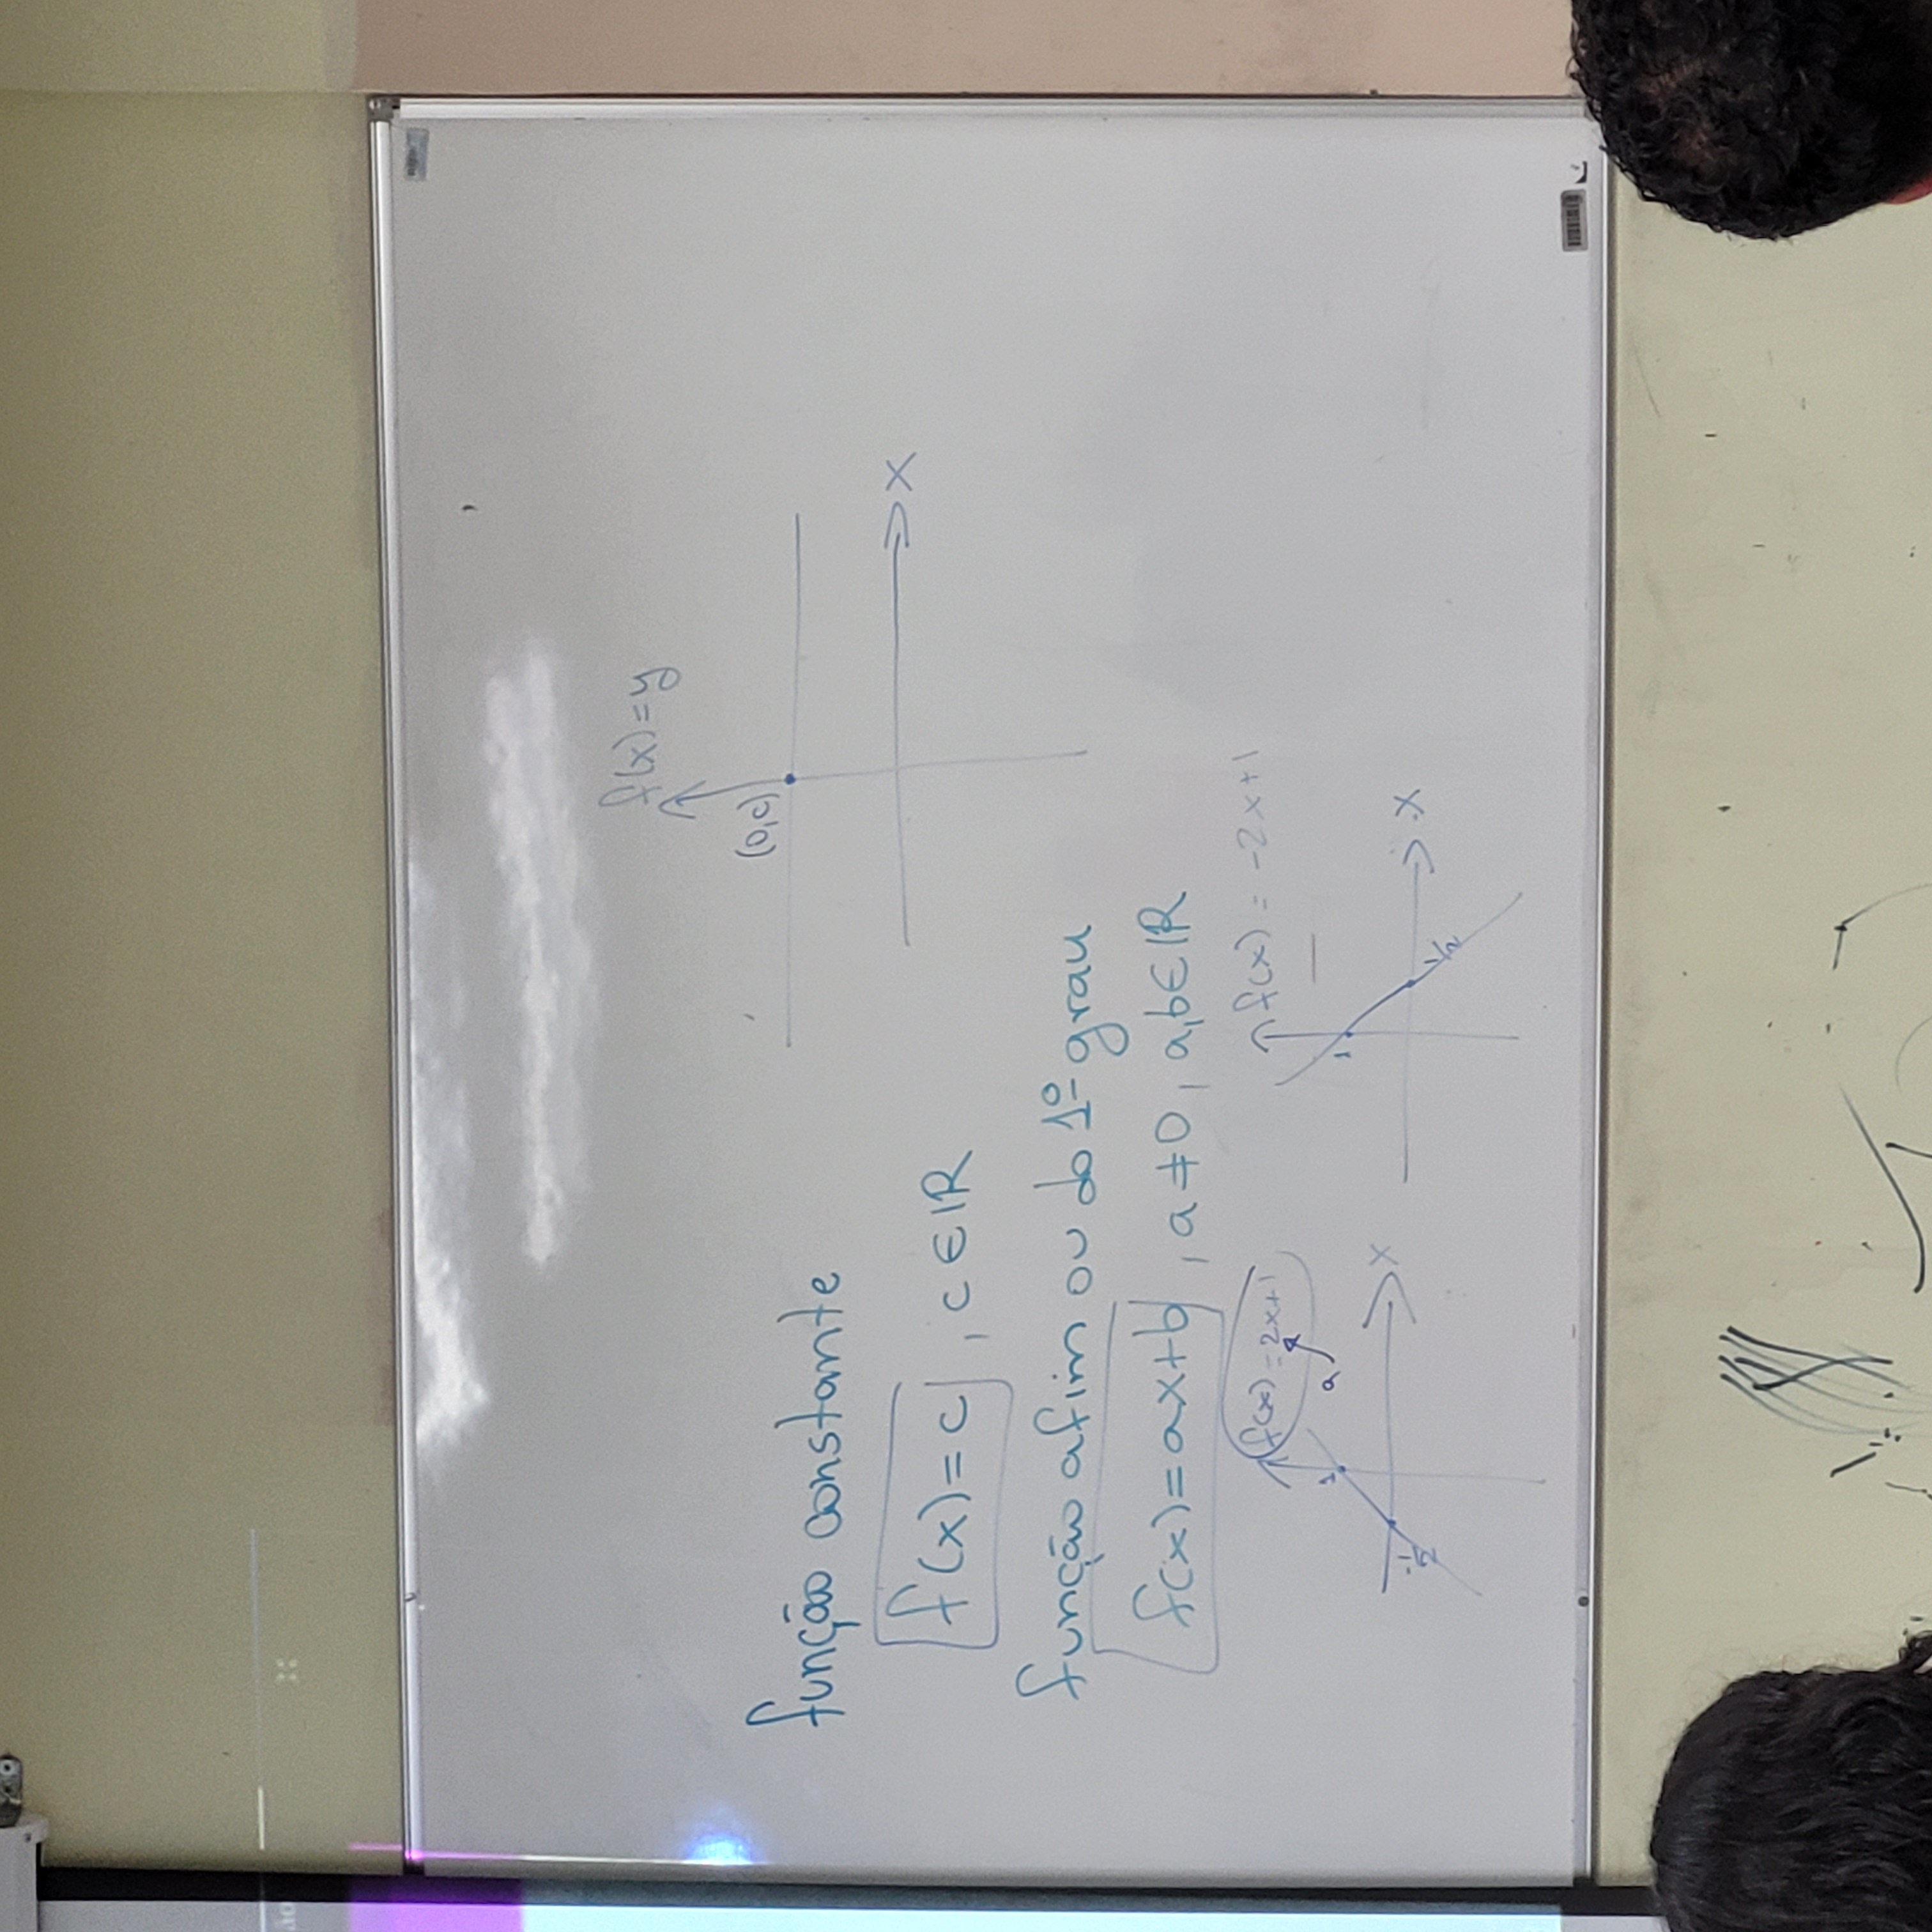 f(x)=y
(0,c)
x
função constante
f(x)=c, c∈IR
função afim ou do 1º grau
f(x)=ax+b, a≠0, a,b∈IR
f(x)=2x+1
a
1
-1/2
x
f(x)=-2x+1
1
1/2
x